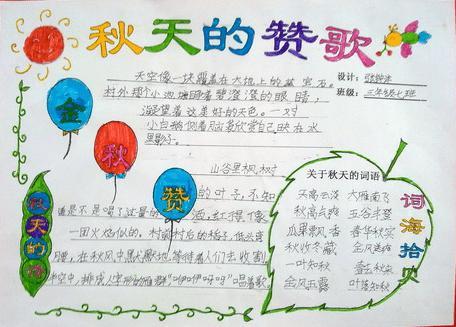 秋天的赞歌
天空像一块覆盖在大地上的蓝宝石。
村外那个小池塘睁着碧澄澄的眼睛,
凝望着这美好的天色。一对
小白鹅侧着脑袋欣赏自己映在水
里影子。
设计:
班级:三年级七班
金
秋
赞
山谷里枫树
的叶子,不知
道是不是喝了过量的酒,红得像
一团火焰似的。村前村后的稻子,低头弯
腰,在秋风中默默地等待着人们去收割
半空中,排成人字形的雁群"咿呀咿呀"唱着歌。
秋天的
关于秋天的词语
天高云淡 大雁南飞
秋高气爽 五谷丰登
瓜果飘香 春华秋实
秋收冬藏 金风送爽
一叶知秋 春兰秋菊
金风玉露 叶落知秋
词海拾贝